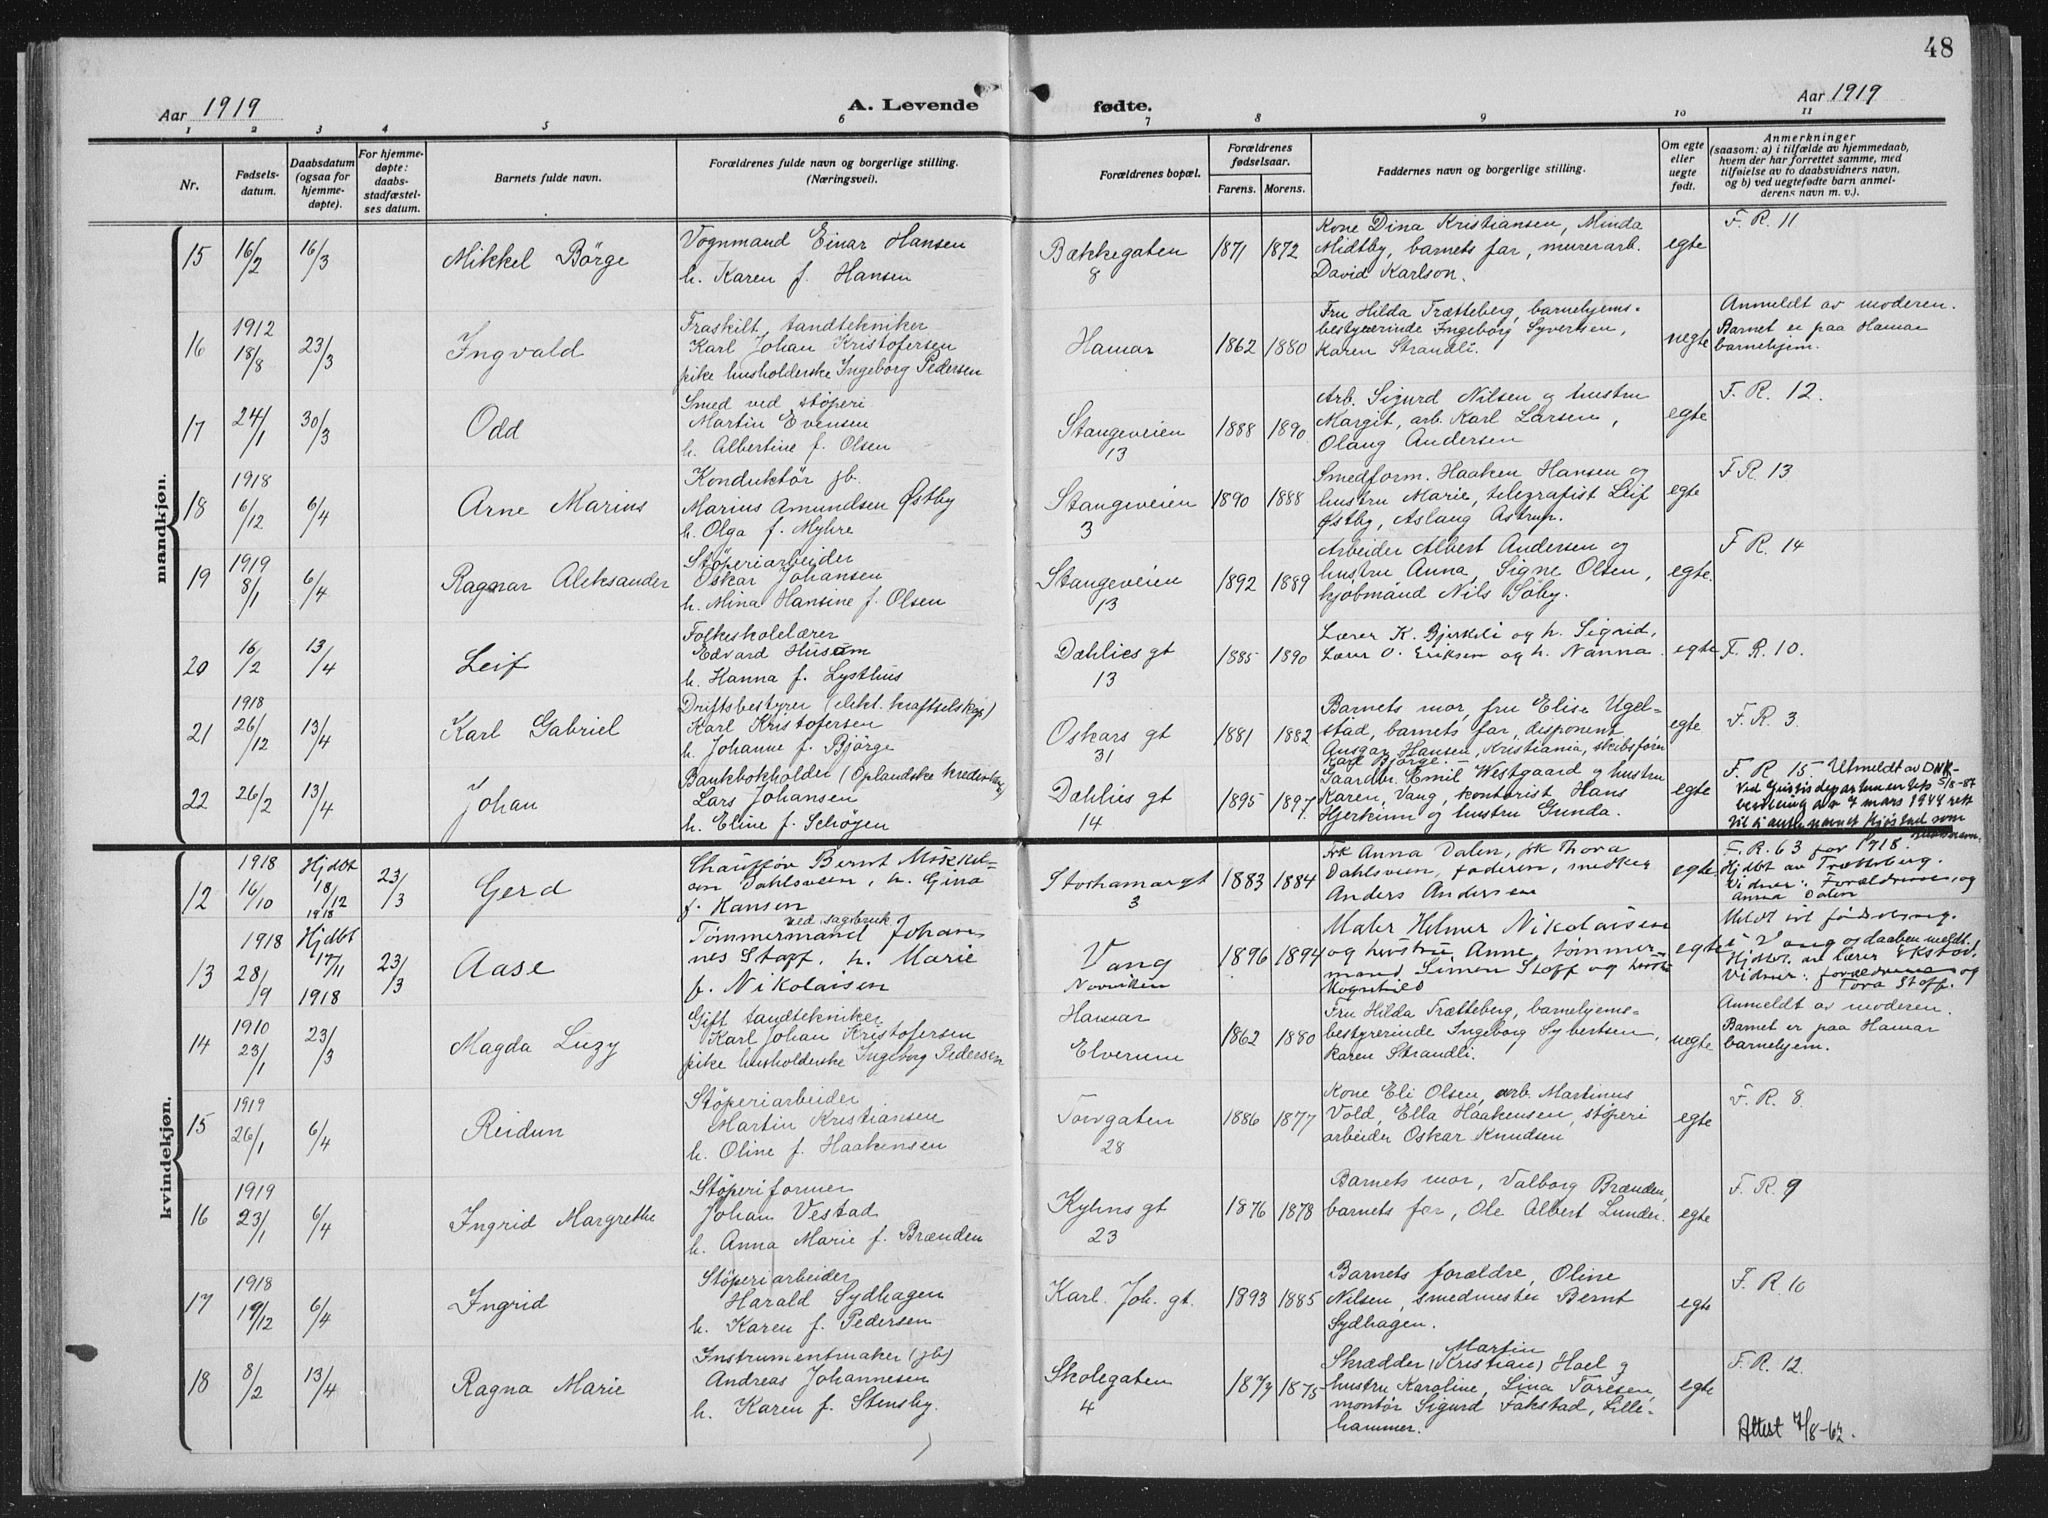 48
Aar 1919
A. Levende
fødte.
Aar 1919
1 2 3 4 5 6 7 8 9 10 11
Nr.
Fødsels-
datum.
Daabsdatum
(ogsaa for
hjemme-
døpte).
For hjemme-
døpte:
daabs-
stadfæstel-
ses datum.
Barnets fulde navn.
Forældrenes fulde navn og borgerlige stilling.
(Næringsvei).
Forældrenes bopæl.
Forældrenes
fødselsaar.
Farens. Morens.
Faddernes navn og borgerlige stilling.
Om egte
eller
uegte
født.
Anmerkninger
(saasom: a) i tilfælde av hjemmedaab,
hvem der har forrettet samme, med
tilføielse av to daabsvidners navn,
og b) ved uegtefødte barn anmel-
derens navn m. v.).
mandkjøn.
15 16/2 16/3 Mikkel Börge
Vognmand Einar Hansen
h. Karen f. Hansen
Bækkegaten
8
1871 1872
Kone Dina Kristiansen, Minda
Midtby, barnets far, murerarb.
David Karlson.
egte
F. R. 11
16 1912
18/8 23/3 Ingvald
Fraskilt tandtekniker
Karl Johan Kristofersen
pike husholderske Ingeborg Pedersen
Hamar
1862 1880
Fru Hilda Trætteberg, barnehjems-
bestyrerinde Ingeborg Syvertsen,
Karen Strandli.
uegte
Anmeldt av moderen.
Barnet er paa Hamar
barnehjem.
17 24/1 30/3 Odd
Smed ved støperi
Martin Evensen
h. Albertine f. Olsen
Stangeveien
13
1888 1890
Arb. Sigurd Nilsen og hustru
Margit, arb. Karl Larsen,
Olaug Andersen
egte
F. R. 12.
18 1918
6/12 6/4 Arne Marius
Konduktör jb.
Marius Amundsen Østby
h. Olga f. Myhre
Stangeveien
3
1890 1888
Smedform. Haaken Hansen og
hustru Marie, telegrafist Leif
Østby, Aslaug Astrup.
egte
F R. 13
19 1919
8/1 6/4 Ragnar Aleksander
Støperiarbeider
Oskar Johansen
h. Mina Hansine f. Olsen
Stangeveien
13
1892 1889
Arbeider Albert Andersen og
hustru Anna, Signe Olsen,
kjøbmand Nils Söby.
egte.
F R. 14
20 16/2 13/4 Leif
Folkeskolelærer
Edvard Husom
h. Hanna f. Lysthus
Dæhlies gt
13
1885 1890
Lærer K. Bjerkeli og h. Sigrid,
Lærer O. Eriksen og h. Nanna.
egte
F. R. 10.
21 1918
26/12 13/4 Karl Gabriel
Driftsbestyrer (elekt. kraftselskap)
Karl Kristofersen
h. Johanne f. Bjørge
Oskars gt
31
1881 1882
Barnets mor, fru Elise Ugel-
stad, barnets far, disponent
Ansgar Hansen, Kristiania, skibsfører
Karl Bjørge.
egte
F. R. 3.
22 26/2 13/4 Johan
Bankbokholder (Oplandske
Lars Johansen
h. Eline f. Schøyen
Dæhlies gt
14
1895 1897.
Gaardbr. Emil Westgaard og hustru
Karen, Vang, kontorist Hans
Hjerkinn og hustru Gunda.
egte
F. R. 15. Utmeldt av DNK-
5/8-87
Ved Justisdepartementets
bevilling av 7 mars 1944 rett
til å anta navnet Kjøstad som
kvindekjøn.
12 1918
16/10 Hjdbt
18/12
1918 23/3 Gerd
Chauffør Bernt Mikkel-
sen Dahlsveen, h. Gina
f. Hansen
Storhamargt
3
1883 1884
Frk Anna Dalen, frk Thora
Dahlsveen, faderen, snedker
Anders Andersen
egte
F. R. 63 for 1918.
Hjdbt av Trætteberg.
Vidner: Forældrene, og
Anna Dalen
13 1918
28/9 Hjdbt
17/11
1918 23/3 Aase
ved sagbruk
Tømmermand Johan-
nes Stoff. h. Marie
f. Nikolaisen
Vang
1896 1894
Maler Helmer Nikolaisen
og hustru Anne, tømmer
mand Simen Stoff og hustru
egte
Meldt til fødselsreg.
i Vang og daaben meldt.
Hjdbt. av lærer Ekstad.
Vidner: forældrene og
Tora Stoff.
14 1910
23/1 23/3 Magda Luzy
Gift tandtekniker
Karl Johan Kristofersen
pike husholderske Ingeborg Pedersen
Hamar
Elverum
1862 1880
Fru Hilda Trætteberg, barnehjems-
bestyrerinde Ingeborg Sybertsen,
Karen Strandli.
uegte
Anmeldt av moderen.
Barnet er paa Hamar
barnehjem.
15 1919
26/1 6/4 Reidun
Støperiarbeider
Martin Kristiansen
h. Oline f. Haakensen
Torvgaten
28
1886 1877
Kone Eli Olsen, arb. Martinus
Vold, Ella Haakensen, støperi
arbeider Oskar Knudsen
egte
F. R. 8.
16 1919
23/1 6/4 Ingrid Margrethe
Støperiformer
Johan Vestad
h. Anna Marie f. Brænden
Kyhns gt
23
1876 1878
Barnets mor, Valborg Brænden,
barnets far, Ole Albert Lunder.
egte
F. R. 9
17 1918
19/12 6/4 Ingrid
Støperiarbeider
Harald Sydhagen
h. Karen f. Pedersen
Karl. Joh. gt.
1893 1885
Barnets forældre, Oline
Nilsen, smedmester Bernt
Sydhagen.
egte
F. R. 10
18 8/2 13/4 Ragna Marie
Instrumentmaker (jb)
Andreas Johannesen
h. Karen f. Stensby.
Skolegaten
4
1874 1875
Martin
Skrædder (Kristian) Hoel og
hustru Karoline, Lina Toresen,
montör Sigurd Fakstad, Lille-
hammer.
egte
F. R. 12.
Attest 7/8-62.